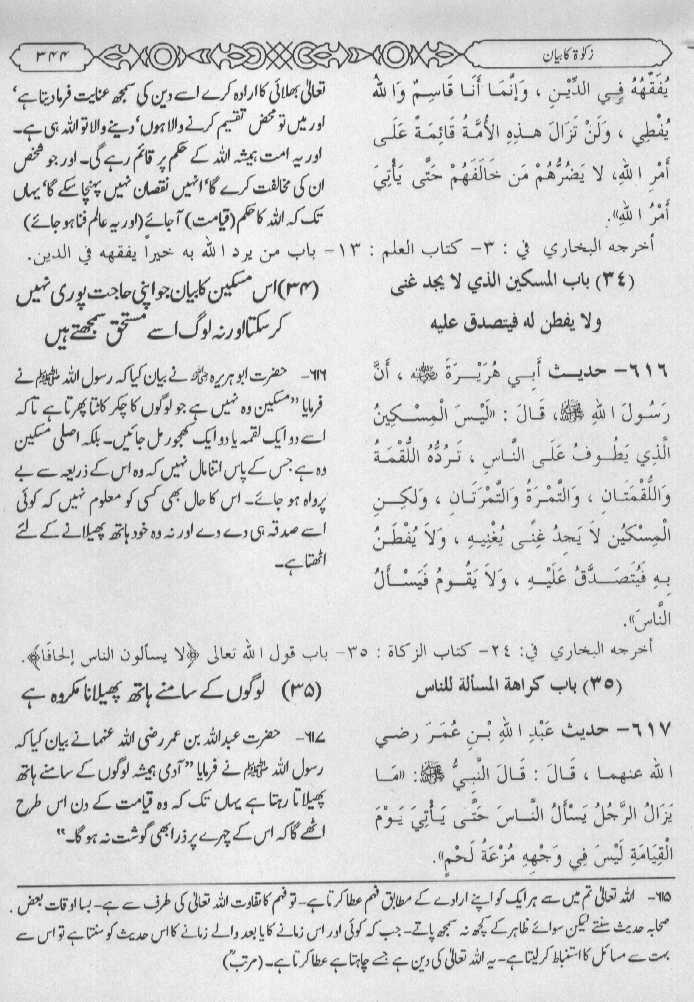 زکوٰۃ کا بیان
۳۴۴
يُفَقِّهْهُ فِي الدِّيْنِ ، وَإِنَّمَا أَنَا قَاسِمٌ وَاللهُ
يُعْطِي ، وَلَنْ تَزَالَ هَذِهِ الأُمَّةُ قَائِمَةً عَلَى
أَمْرِ اللهِ، لاَ يَضُرُّهُمْ مَن خَالَفَهُمْ حَتَّى يَأْتِيَ
أَمْرُ اللهِ».
تعالیٰ بھلائی کا ارادہ کرے اسے دین کی سمجھ عنایت فرما دیتا ہے‘
اور میں تو محض تقسیم کرنے والا ہوں‘ دینے والا تو اللہ ہی ہے۔
اور یہ امت ہمیشہ اللہ کے حکم پر قائم رہے گی۔ اور جو شخص
ان کی مخالفت کرے گا‘ انہیں نقصان نہیں پہنچا سکے گا‘ یہاں
تک کہ اللہ کا حکم (قیامت) آجائے (اور یہ عالم فنا ہو جائے)
أخرجه البخاري في : ٣- كتاب العلم : ١٣- باب من يرد الله به خيراً يفقهه في الدين.
(٣٤) باب المسكين الذي لا يجد غنى
ولا يفطن له فيتصدق عليه
(۳۴) اس مسکین کا بیان جو اپنی حاجت پوری نہیں
کر سکتا اور نہ لوگ اسے مستحق سمجھتے ہیں
٦١٦- حديث أَبِي هُرَيْرَةَ رضي الله عنه ، أَنَّ
رَسُولَ اللهِ ﷺ، قَالَ : «لَيْسَ الْمِسْكِينُ
الَّذِي يَطُوفُ عَلَى النَّاسِ ، تَرُدُّهُ اللُّقْمَةُ
وَاللُّقْمَتَانِ ، وَالتَّمْرَةُ وَالتَّمْرَتَانِ ، وَلَكِنِ
الْمِسْكَيْنُ لاَ يَجِدُ غِنًى يُغْنِيهِ ، وَلاَ يُفْطَنُ
بِهِ فَيُتَصَدَّقُ عَلَيْهِ ، وَلاَ يَقُومُ فَيَسْأَلُ
النَّاسَ».
۶۱۶- حضرت ابو ہریرہ رضی اللہ عنہ نے بیان کیا کہ رسول اللہ ﷺ نے
فرمایا ”مسکین وہ نہیں ہے جو لوگوں کا چکر کاٹتا پھرتا ہے تا کہ
اسے دو ایک لقمہ یا دو ایک کھجور مل جائیں۔ بلکہ اصلی مسکین
وہ ہے جس کے پاس اتنا مال نہیں کہ وہ اس کے ذریعہ سے بے
پرواہ ہو جائے۔ اس کا حال بھی کسی کو معلوم نہیں کہ کوئی
اسے صدقہ ہی دے دے اور نہ وہ خود ہاتھ پھیلانے کے لئے
اٹھتا ہے۔
أخرجه البخاري في: ٢٤- كتاب الزكاة : ٣٥- باب قول الله تعالى ﴿لا يسألون الناس إلحافا﴾.
(٣٥) باب كراهة المسألة للناس
(۳۵) لوگوں کے سامنے ہاتھ پھیلانا مکروہ ہے
٦١٧- حديث عَبْدِ اللهِ بْنِ عُمَرَ رضي
الله عنهما ، قَالَ : قَالَ النَّبِيُّ ﷺ: «مَا
يَزَالُ الرَّجُلُ يَسْأَلُ النَّاسَ حَتَّى يَأْتِيَ يَوْمَ
الْقِيَامَةِ لَيْسَ فِي وَجْهِهِ مُزْعَةُ لَحْمٍ».
۶۱۷- حضرت عبداللہ بن عمر رضی اللہ عنہما نے بیان کیا کہ
رسول اللہ ﷺ نے فرمایا ”آدمی ہمیشہ لوگوں کے سامنے ہاتھ
پھیلاتا رہتا ہے یہاں تک کہ وہ قیامت کے دن اس طرح
اٹھے گا کہ اس کے چہرے پر ذرا بھی گوشت نہ ہو گا۔“
۶۱۵- اللہ تعالیٰ تم میں سے ہر ایک کو اپنے ارادے کے مطابق فہم عطا کرتا ہے۔ تو فہم کا تفاوت اللہ تعالیٰ کی طرف سے ہے۔ بسا اوقات بعض
صحابہ حدیث سنتے لیکن سوائے ظاہر کے کچھ نہ سمجھ پاتے۔ جب کہ کوئی اور اس زمانے کا یا بعد والے زمانے کا اس حدیث کو سنتا ہے تو اس سے
بہت سے مسائل کا استنباط کر لیتا ہے۔ یہ اللہ تعالیٰ کی دین ہے جسے چاہتا ہے عطا کرتا ہے۔ (مرتبؒ)